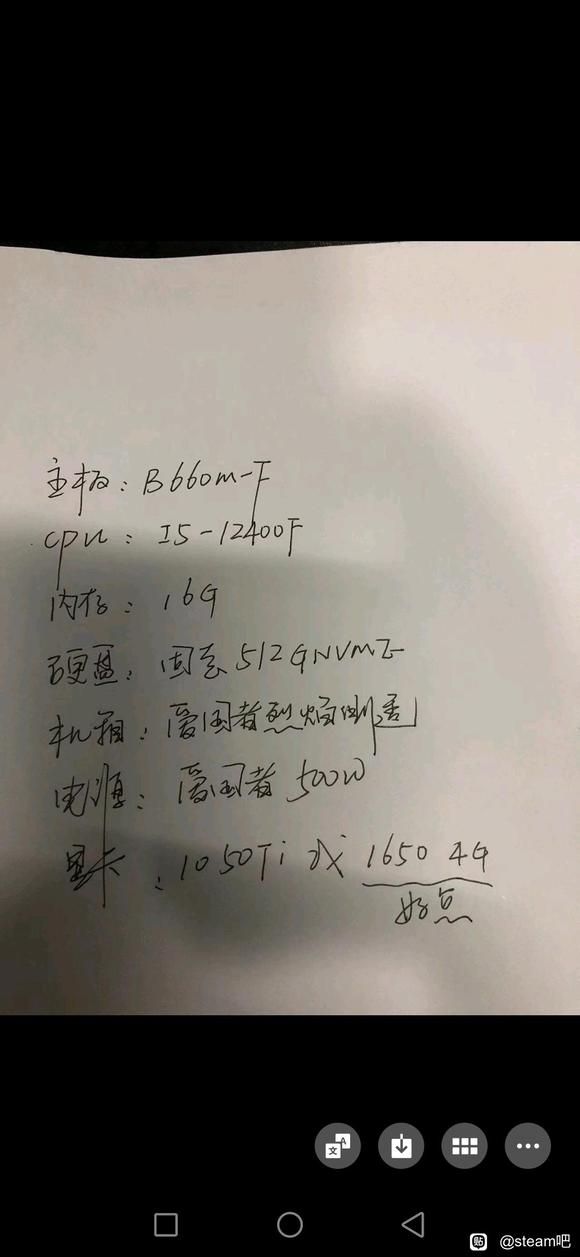 主板：B660m-F
cpu：I5-12400F
内存：16G
硬盘：固态512GNVME
机箱：爱国者烈焰侧透
电源：爱国者500W
显卡：1050Ti 或 1650 4G
好点
贴 @steam吧